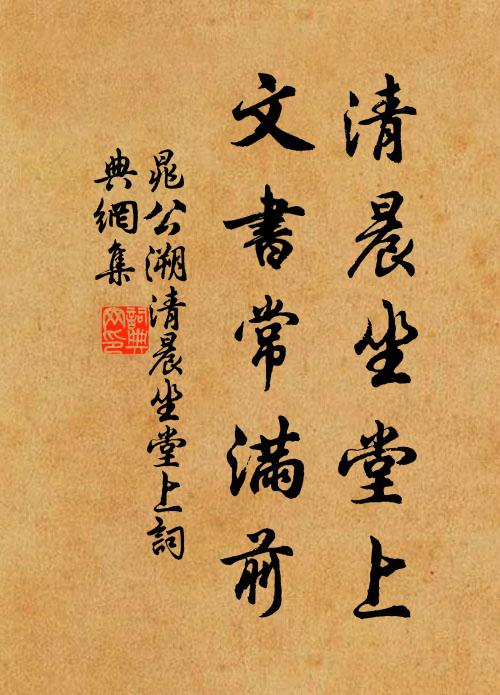 清晨坐堂上
文書常滿前
晁公溯清晨坐堂上詞
典網集
詞典
网印